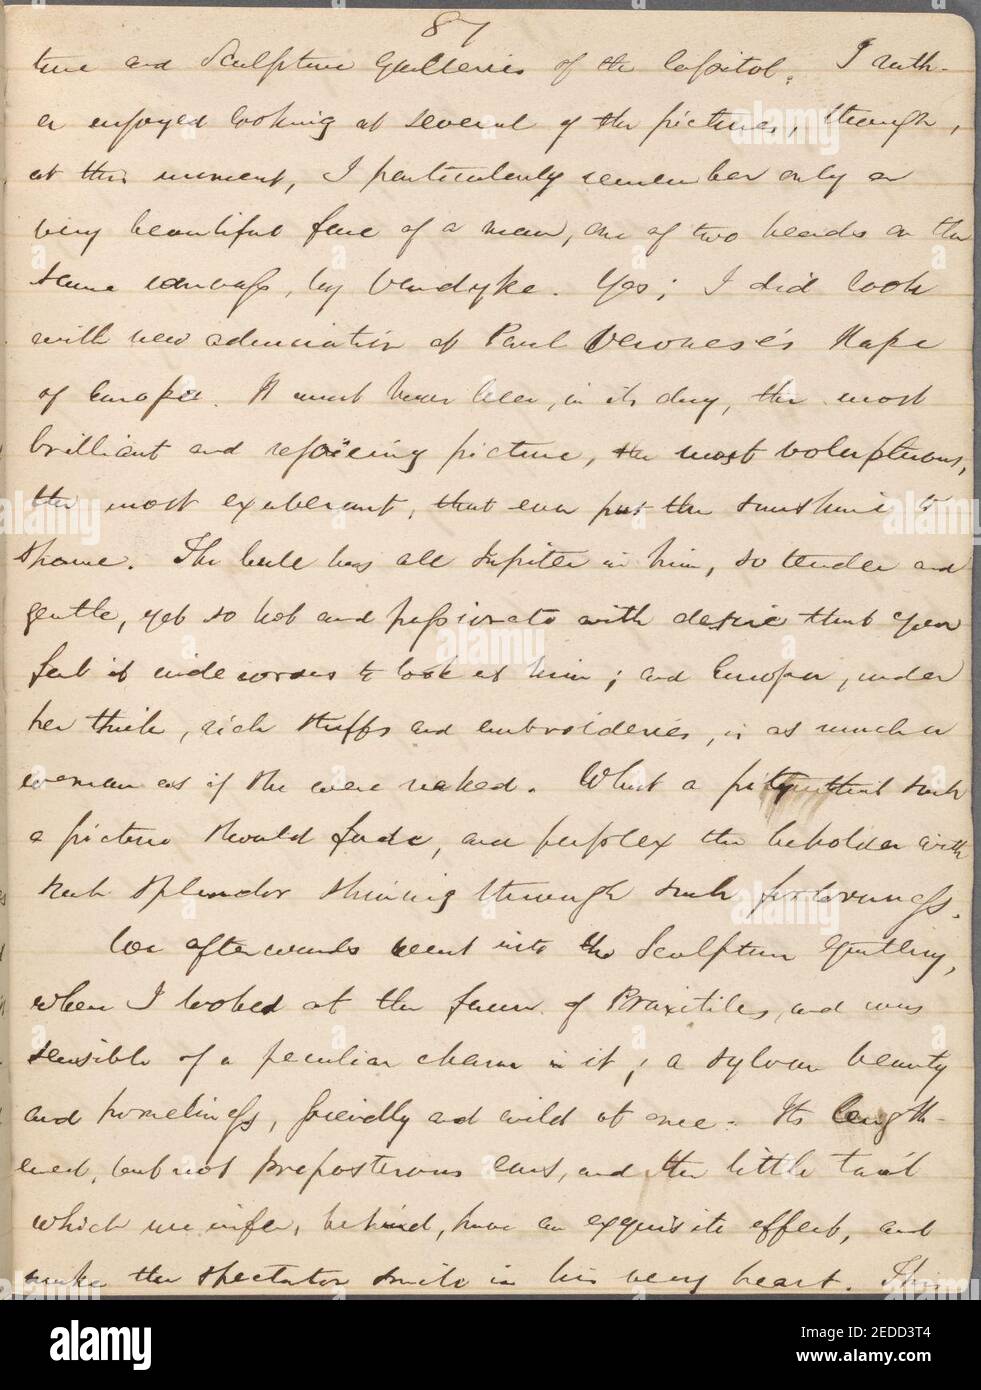 87
ture and Sculpture Galleries of the Capitol. I rath-
er enjoyed looking at several of the pictures, though,
at this moment, I particularly remember only a
very beautiful face of a man, one of two heads on the
same canvass, by Vandyke. Yes; I did look
with new admiration at Paul Veronese's Rape
of Europa. It must have been, in its day, the most
brilliant and rejoicing picture, the most voluptuous,
the most exuberant, that ever put the sunshine to
shame. The bull has all Jupiter in him, so tender and
gentle, yet so hot and passionate with desire that you
feel it indecorous to look at him; and Europa, under
her thick, rich stuffs and embroideries, is as much a
woman as if she were naked. What a pity that such
a picture should fade, and perplex the beholder with
such splendor shining through such forlornness.
We afterwards went into the Sculpture Gallery,
where I looked at the Faun of Praxitiles, and was
sensible of a peculiar charm in it; a sylvan beauty
and homeliness, friendly and wild at once. Its length-
ened, but not preposterous ears, and the little tail
which we infer, behind, have an exquisite effect, and
make the spectator smile in his very heart. This
alamy
alamy
Image ID: 2EDD3T4
www.alamy.com